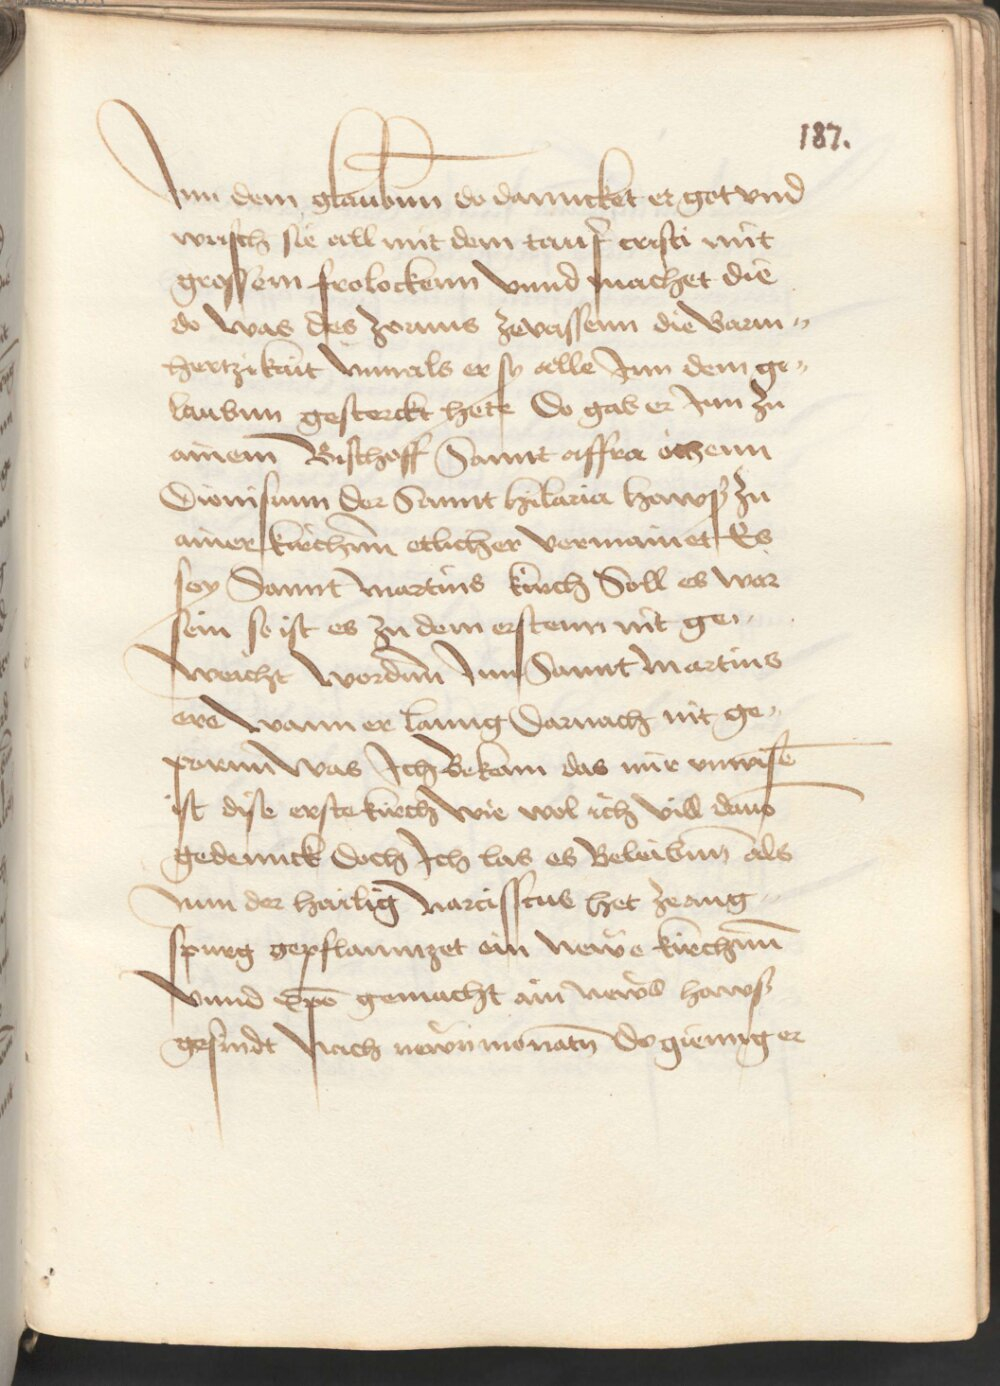 187.
Inn dem glaubnn do danncket er got vnd
wusch sie all mit dem tauf cristi mit
grossem frolockenn vnnd machet die
do was des zornns zevassenn die Barm„
hertzikait vnnd als er sy alle Inn dem ge„
laubnn gesterckt hete Do gab er Inn zu
ainem Bischoff Sannt affra öhenn
Dionisium der Sannt hilaria hawß zu
ainer kirchnn etlicher vermainet Es
sey Sannt martins kirch Soll es war
sein so ist es zu dem erstenn nit ge„
weicht wordnn Inn Sannt martins
ere wann er lanng darnach nit ge„
pornn was Ich Bekenn das mir vnwisē
ist dise erste kirch wie wol ich vill dauō
gedennck doch Ich las es Beleibnn als
nun der heilig narcisscus het ze aug„
spurg gepflanntzet ain newe kirchnn
vnnd xpō gemacht ain news hawß
gesindt Nach newn monatn Do gienng er